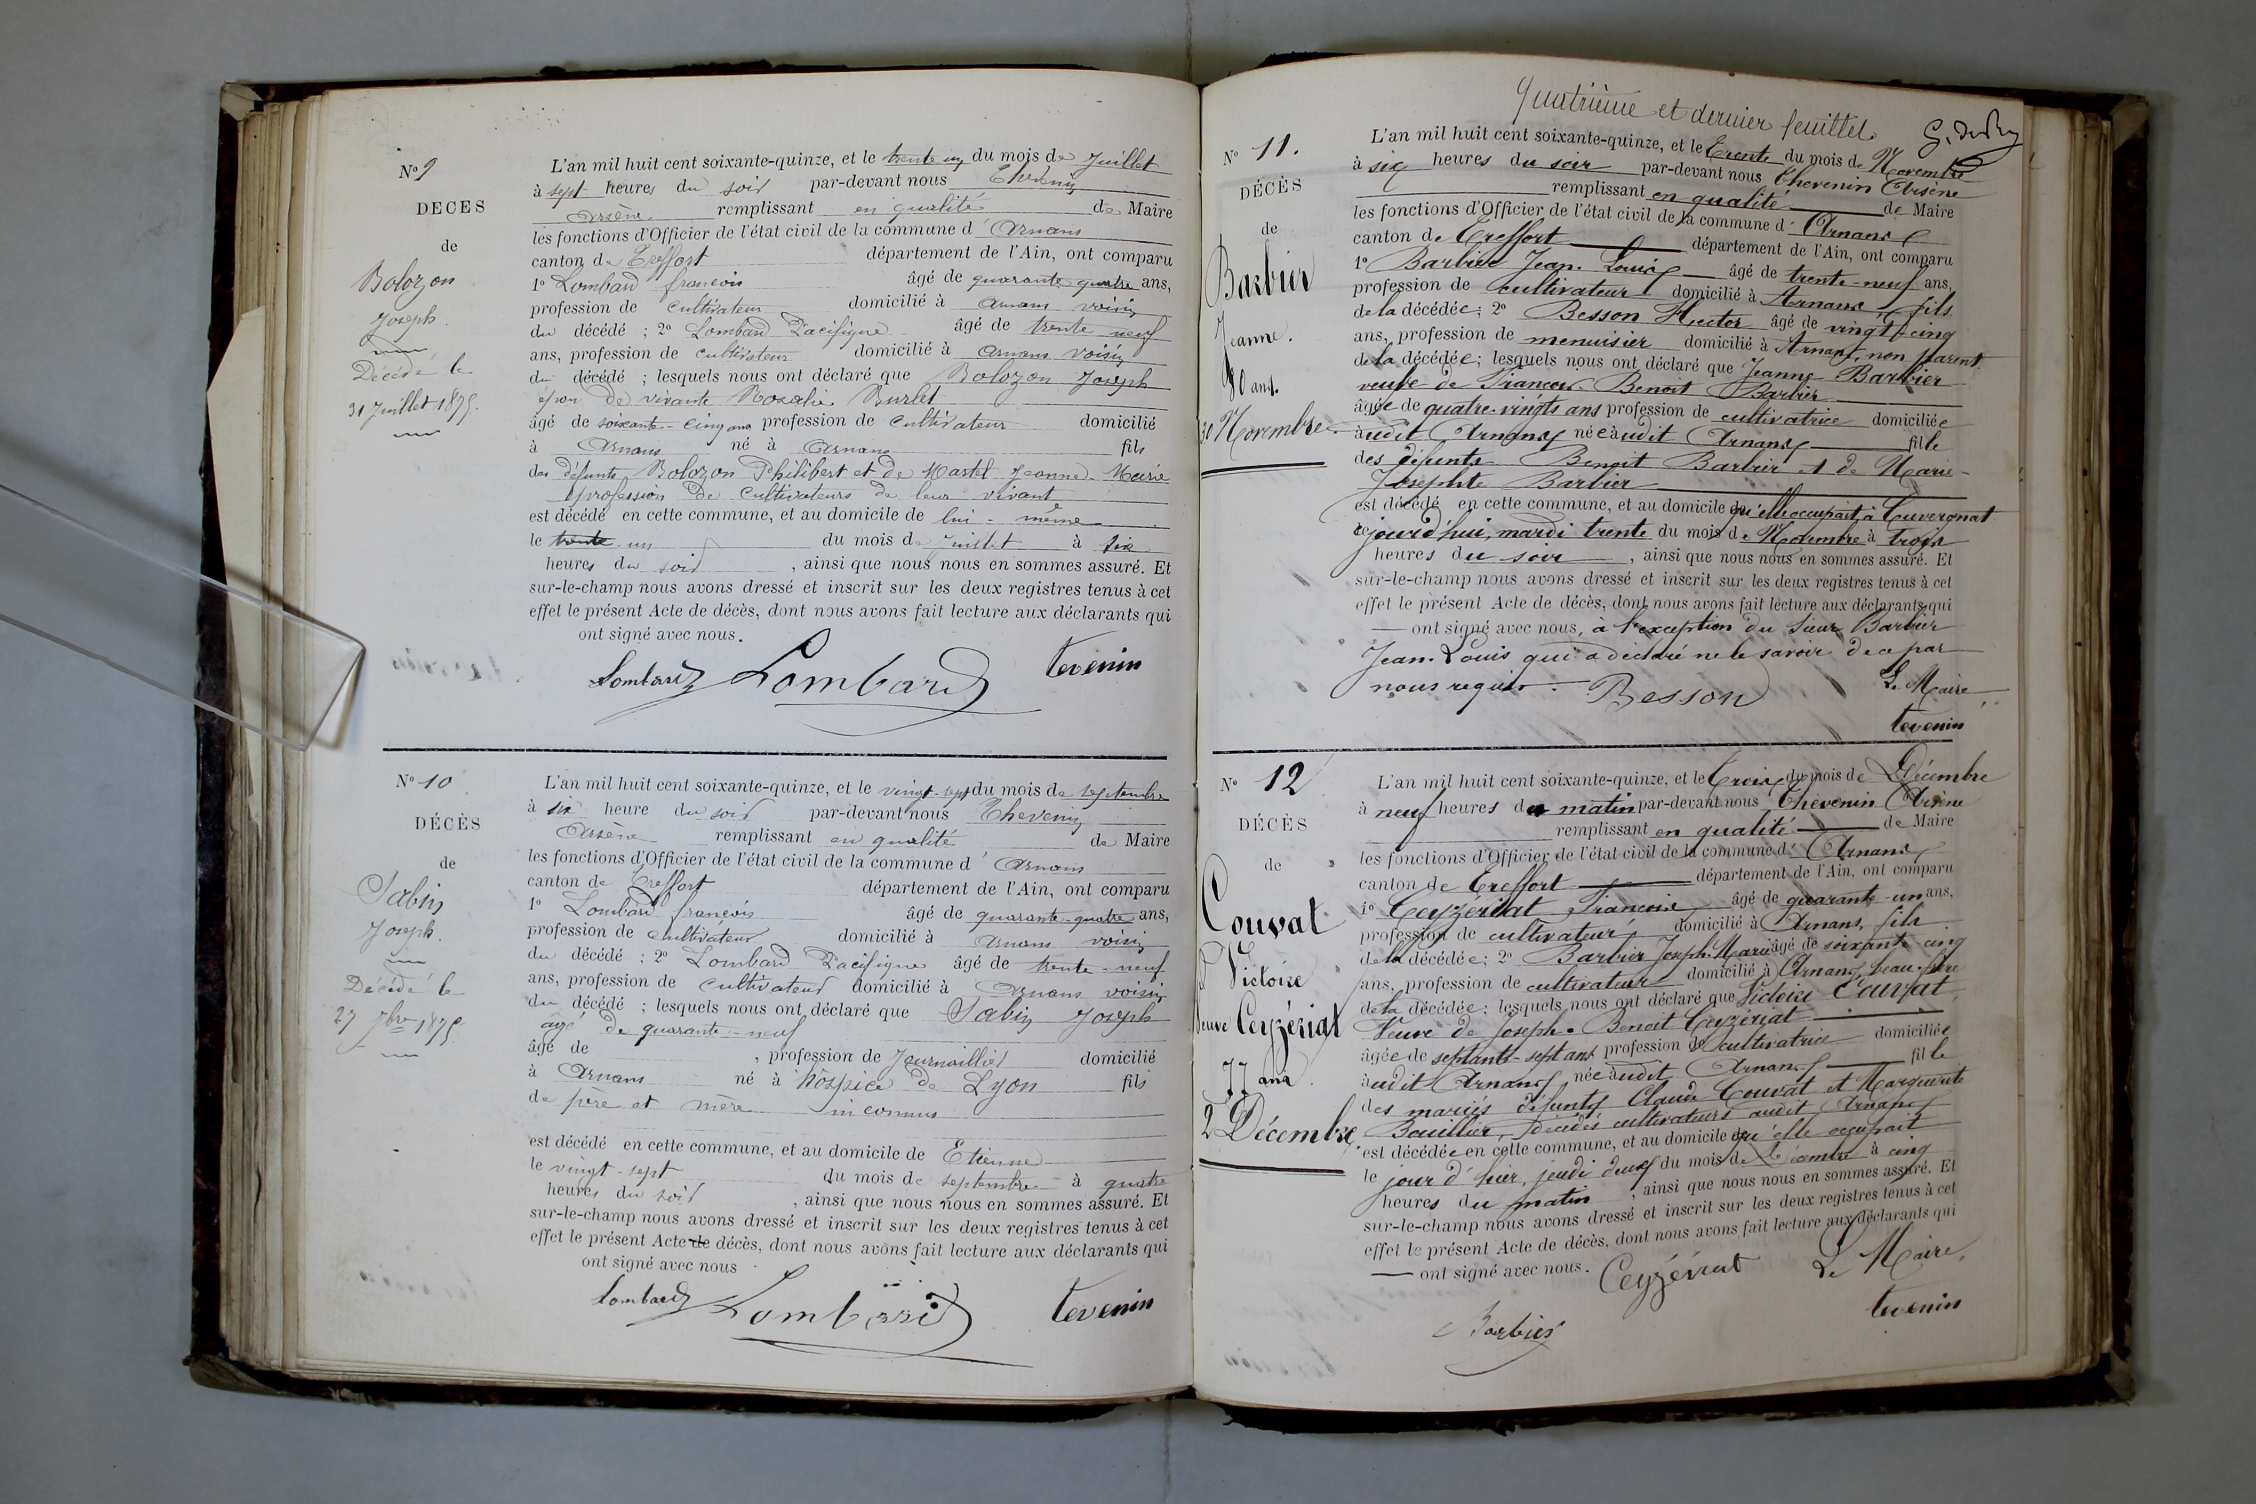 No 9
DECES
de
Bolozon
Joseph
Décédé le
31 Juillet 1875.
L'an mil huit cent soixante-quinze, et le trente un du mois de Juillet
à sept heures du soir par-devant nous Thevenin
Arsène remplissant en qualité de Maire
les fonctions d'Officier de l'état civil de la commune d' Arnans
canton de Treffort département de l'Ain, ont comparu
1o Lombard françois âgé de quarante quatre ans,
profession de cultivateur domicilié à arnans voisin
du décédé ; 2o Lombard Pacifique âgé de trente neuf
ans, profession de cultivateur domicilié à arnans voisin
du décédé ; lesquels nous ont déclaré que Bolozon Joseph
époux de vivante Rosalie Burlet
âgé de soixante-cinq ans profession de cultivateur domicilié
à Arnans né à Arnans fils
des défunts Bolozon Philibert et de Martel Jeanne-Marie
profession de cultivateurs de leur vivant
est décédé en cette commune, et au domicile de lui-même
le trente un du mois de Juillet à six
heures du soir , ainsi que nous nous en sommes assuré. Et
sur-le-champ nous avons dressé et inscrit sur les deux registres tenus à cet
effet le présent Acte de décès, dont nous avons fait lecture aux déclarants qui
ont signé avec nous.
Lombard Lombard tevenin
No 10
DÉCÈS
de
Sabin
Joseph.
Décédé le
27 7bre 1875.
L'an mil huit cent soixante-quinze, et le vingt-sept du mois de septembre
à six heure du soir par-devant nous Thevenin
Arsène remplissant en qualité de Maire
les fonctions d'Officier de l'état civil de la commune d' Arnans
canton de Treffort département de l'Ain, ont comparu
1o Lombard françois âgé de quarante-quatre ans,
profession de cultivateur domicilié à Arnans voisin
du décédé ; 2o Lombard Pacifique âgé de trente-neuf
ans, profession de cultivateur domicilié à Arnans voisin
du décédé ; lesquels nous ont déclaré que Sabin Joseph
âgé de quarante-neuf
âgé de , profession de Journaillier domicilié
à Arnans né à hospice de Lyon fils
de père et mère inconnus
est décédé en cette commune, et au domicile de Etienne
le vingt-sept du mois de septembre à quatre
heures du soir , ainsi que nous nous en sommes assuré. Et
sur-le-champ nous avons dressé et inscrit sur les deux registres tenus à cet
effet le présent Acte de décès, dont nous avons fait lecture aux déclarants qui
ont signé avec nous
Lombard Lombard tevenin
Quatrième et dernier feuillet.
No 11.
DÉCÈS
de
Barbier
Jeanne.
80 ans.
30 Novembre
L'an mil huit cent soixante-quinze, et le Trente du mois de Novembre
à six heures du soir par-devant nous Thevenin Arsène
remplissant en qualité de Maire
les fonctions d'Officier de l'état civil de la commune d' Arnans
canton de Treffort département de l'Ain, ont comparu
1o Barbier Jean-Louis âgé de trente-neuf ans,
profession de cultivateur domicilié à Arnans, fils
de la décédée; 2o Besson Hector âgé de vingt-cinq
ans, profession de menuisier domicilié à Arnans, non parent
de la décédée; lesquels nous ont déclaré que Jeanne Barbier
veuve de François Benoit Barbier
âgée de quatre-vingts ans profession de cultivatrice domiciliée
audit Arnans née audit Arnans fille
des défunts Benoit Barbier et de Marie-
Josephte Barbier
est décédé en cette commune, et au domicile qu'elle occupait à Cuvergnat
cejourd'hui, mardi trente du mois de Novembre à trois
heures du soir , ainsi que nous nous en sommes assuré. Et
sur-le-champ nous avons dressé et inscrit sur les deux registres tenus à cet
effet le présent Acte de décès, dont nous avons fait lecture aux déclarants qui
ont signé avec nous, à l'exception du sieur Barbier
Jean-Louis qui a declaré ne le savoir de ce par
nous requis. Besson Le Maire
tevenin
No 12
DÉCÈS
de
Couvat
Victoire
Veuve Ceyzériat
77 ans.
2 Décembre.
L'an mil huit cent soixante-quinze, et le Trois du mois de Décembre
à neuf heures du matin par-devant nous Thevenin Arsène
remplissant en qualité de Maire
les fonctions d'Officier de l'état civil de la commune d' Arnans
canton de Treffort département de l'Ain, ont comparu
1o Ceyzériat François âgé de quarante-un ans,
profession de cultivateur domicilié à Arnans, fils
de la décédée; 2o Barbier Joseph Marie âgé de soixante cinq
ans, profession de cultivateur domicilié à Arnans, beau-frère
de la décédée; lesquels nous ont déclaré que Victoire Couvat
Veuve de Joseph-Benoit Ceyzériat
âgée de septante-sept ans profession de cultivatrice domiciliée
audit Arnans née audit Arnans fille
des mariés défunts Claude Couvat et Marguerite
Bouillier, décédés cultivateurs audit Arnans
est décédée en cette commune, et au domicile qu'elle occupait
le jour d'hier, jeudi deux du mois de Décembre à cinq
heures du matin , ainsi que nous nous en sommes assuré. Et
sur-le-champ nous avons dressé et inscrit sur les deux registres tenus à cet
effet le présent Acte de décès, dont nous avons fait lecture aux déclarants qui
ont signé avec nous. Ceyzériat Le Maire,
Barbier tevenin